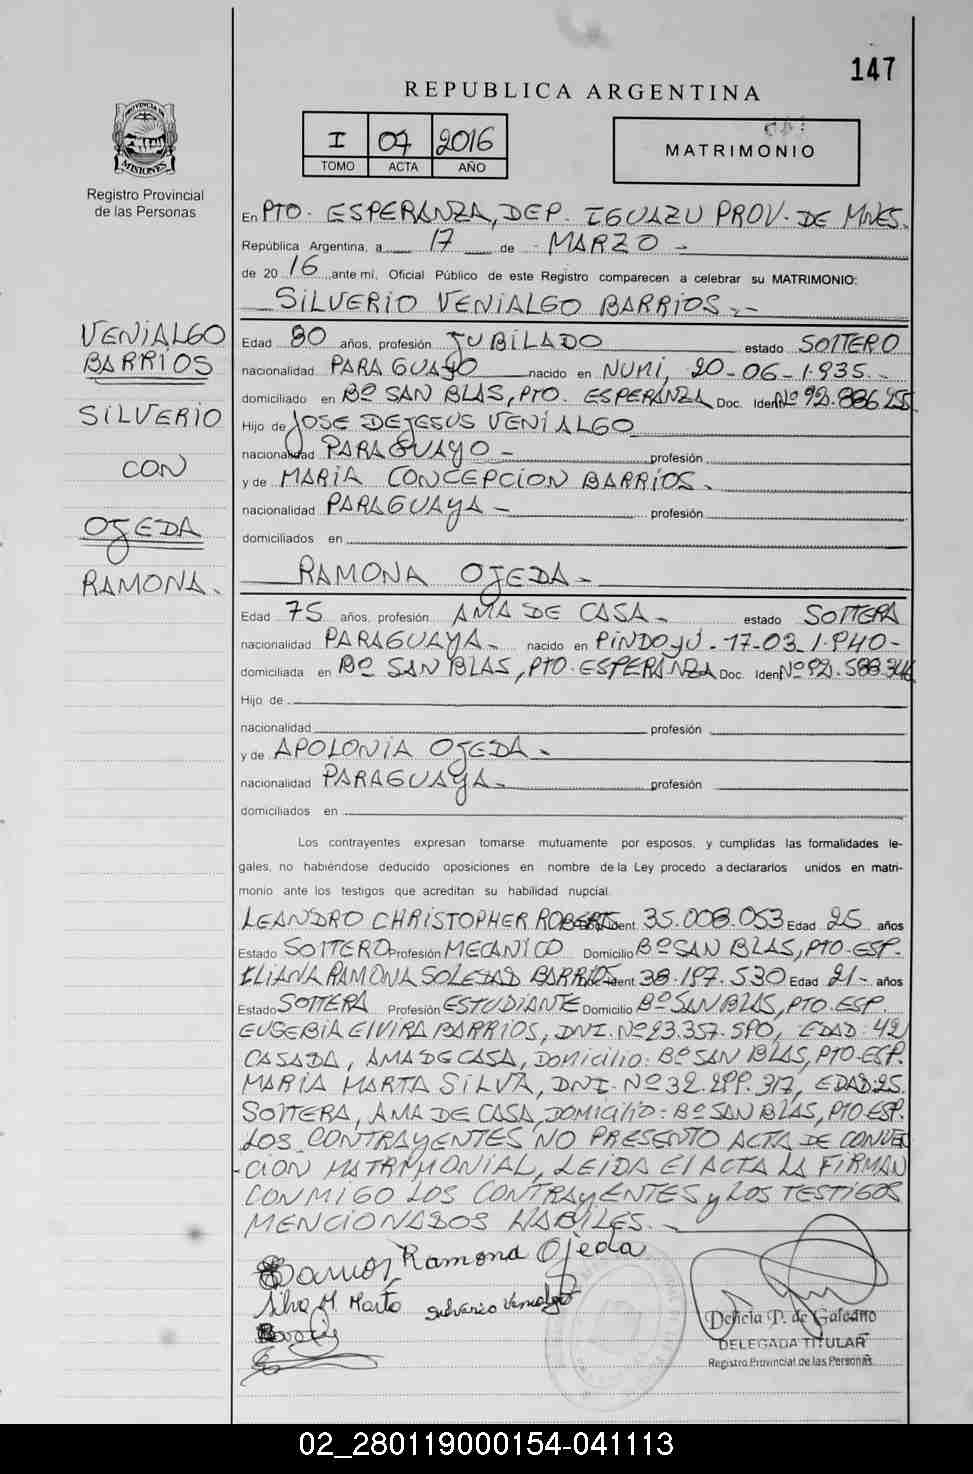 147
REPUBLICA ARGENTINA
PROVINCIA DE MISIONES
Registro Provincial
de las Personas
I 07 2016
TOMO ACTA AÑO
MATRIMONIO
En PTO. ESPERANZA, DEP. IGUAZU PROV. DE MNES.
República Argentina, a 17 de - MARZO -
de 20 16 ante mí, Oficial Público de este Registro comparecen a celebrar su MATRIMONIO:
SILVERIO VENIALGO BARRIOS.-
VENIALGO
BARRIOS
SILVERIO
CON
OJEDA
RAMONA.
Edad 80 años, profesión JUBILADO estado SOLTERO
nacionalidad PARAGUAYO nacido en NUMI, 20-06-1.935.-
domiciliado en Bº SAN BLAS, PTO. ESPERANZA Doc. Ident Nº 92.886.255
Hijo de JOSE DEJESUS VENIALGO
nacionalidad PARAGUAYO - profesión
y de MARIA CONCEPCION BARRIOS.
nacionalidad PARAGUAYA - profesión
domiciliados en
RAMONA OJEDA -
Edad 75 años, profesión AMA DE CASA - estado SOLTERA
nacionalidad PARAGUAYA - nacido en PINDOYU - 17-03-1.940-
domiciliada en Bº SAN BLAS, PTO. ESPERANZA Doc. Ident Nº 92.588.346
Hijo de
nacionalidad profesión
y de APOLONIA OJEDA -
nacionalidad PARAGUAYA - profesión
domiciliados en
Los contrayentes expresan tomarse mutuamente por esposos, y cumplidas las formalidades le-
gales, no habiéndose deducido oposiciones en nombre de la Ley procedo a declararlos unidos en matri-
monio ante los testigos que acreditan su habilidad nupcial.
LEANDRO CHRISTOPHER ROBERTS ident 35.008.053 Edad 25 años
Estado SOLTERO Profesión MECANICO Domicilio Bº SAN BLAS, PTO. ESP.
ELIANA RAMONA SOLEDAD BARRIOS ident 38.197.530 Edad 21- años
Estado SOLTERA Profesión ESTUDIANTE Domicilio Bº SAN BLAS, PTO. ESP.
EUGEBIA ELVIRA BARRIOS, DNI. Nº 23.357.590, EDAD: 42
CASADA, AMA DE CASA, DOMICILIO: Bº SAN BLAS, PTO-ESP.
MARIA MARTA SILVA, DNI. Nº 32.299.317, EDAD: 25.
SOLTERA, AMA DE CASA, DOMICILIO: Bº SAN BLAS, PTO. ESP.
LOS CONTRAYENTES NO PRESENTO ACTA DE CONVEN
-CION MATRIMONIAL, LEIDA EL ACTA LA FIRMAN
CONMIGO LOS CONTRAYENTES y LOS TESTIGOS
MENCIONADOS HABILES. -
Barrios Ramona Ojeda
Silva M. Marta Silverio Venialgo
Delicia P. de Galeano
DELEGADA TITULAR
Registro Provincial de las Personas
02_280119000154-041113